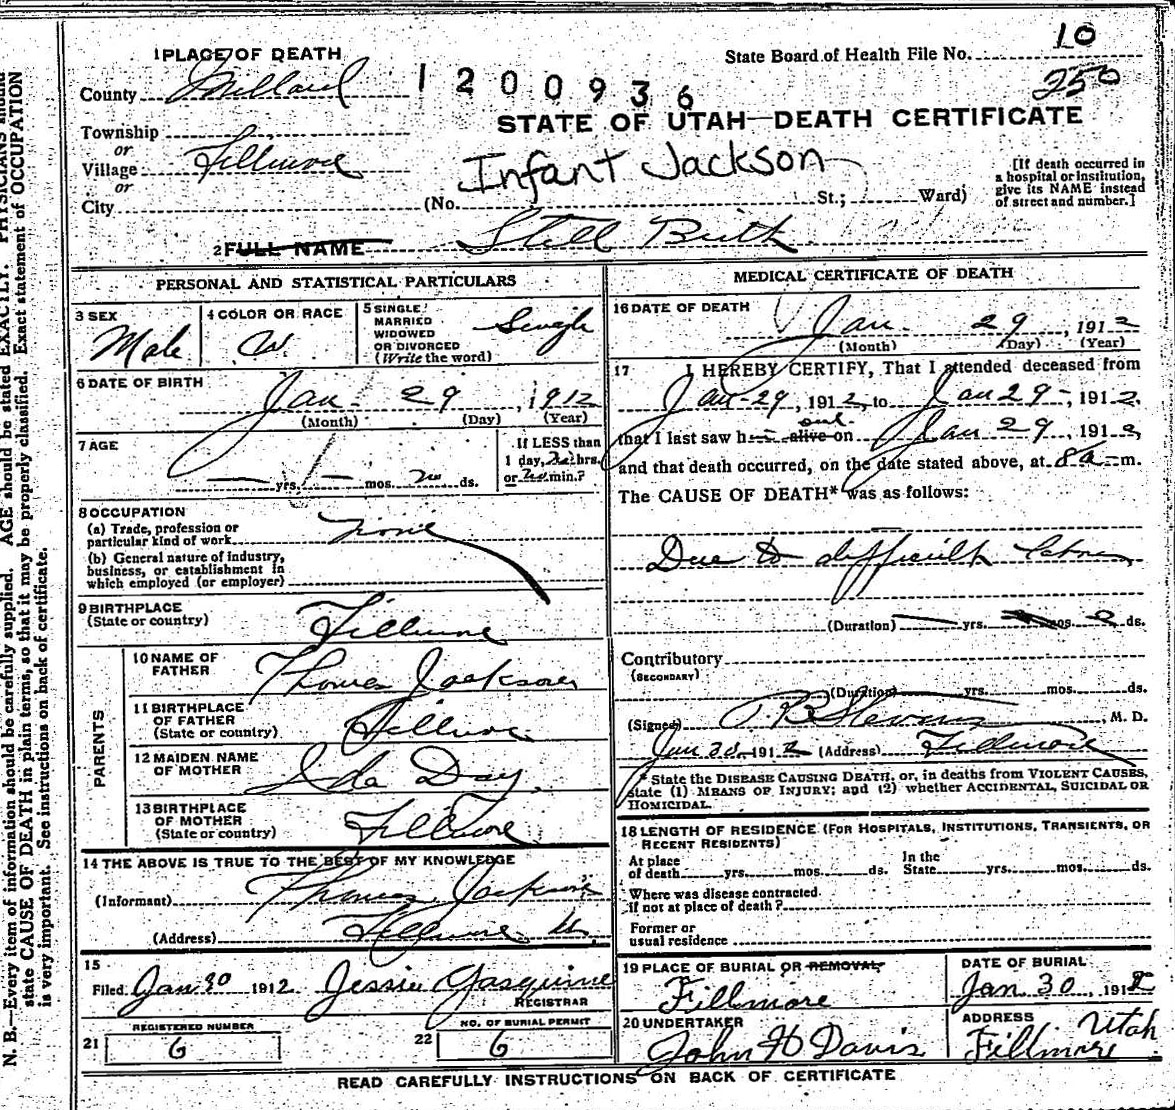 1 PLACE OF DEATH
State Board of Health File No. 10
County Millard
1200936
250
STATE OF UTAH—DEATH CERTIFICATE
Township
or
Village Fillmore
or
City
Infant Jackson
(No. St.; Ward)
[If death occurred in
a hospital or institution,
give its NAME instead
of street and number.]
2 FULL NAME Still Birth
PERSONAL AND STATISTICAL PARTICULARS
3 SEX
Male
4 COLOR OR RACE
W
5 SINGLE
MARRIED
WIDOWED
OR DIVORCED
(Write the word)
Single
6 DATE OF BIRTH
Jan. 29, 1912
(Month) (Day) (Year)
7 AGE
yrs. mos. no ds.
If LESS than
1 day, no hrs.
or no min.?
8 OCCUPATION
(a) Trade, profession or
particular kind of work none
(b) General nature of industry,
business, or establishment in
which employed (or employer)
9 BIRTHPLACE
(State or country) Fillmore
PARENTS
10 NAME OF
FATHER Thomas Jackson
11 BIRTHPLACE
OF FATHER
(State or country) Fillmore
12 MAIDEN NAME
OF MOTHER Ida Day
13 BIRTHPLACE
OF MOTHER
(State or country) Fillmore
14 THE ABOVE IS TRUE TO THE BEST OF MY KNOWLEDGE
(Informant) Thomas Jackson
(Address) Fillmore U.
15
Filed Jan 30 1912 Jessie Gasquine
REGISTRAR
REGISTERED NUMBER
21 6
NO. OF BURIAL PERMIT
22 6
MEDICAL CERTIFICATE OF DEATH
16 DATE OF DEATH
Jan. 29, 1912
(Month) (Day) (Year)
17 I HEREBY CERTIFY, That I attended deceased from
Jan-29, 1912, to Jan 29-, 1912,
that I last saw h alive on Jan 29, 1912,
and that death occurred, on the date stated above, at 8 a-m.
The CAUSE OF DEATH* was as follows:
Due to difficult labor
(Duration) yrs. mos. ds.
Contributory
(SECONDARY)
(Duration) yrs. mos. ds.
(Signed) T B Stevens, M. D.
Jan 30, 1912 (Address) Fillmore
* State the DISEASE CAUSING DEATH, or, in deaths from VIOLENT CAUSES,
state (1) MEANS OF INJURY; and (2) whether ACCIDENTAL, SUICIDAL OR
HOMICIDAL.
18 LENGTH OF RESIDENCE (FOR HOSPITALS, INSTITUTIONS, TRANSIENTS, OR
RECENT RESIDENTS)
At place
of death yrs. mos. ds.
In the
State yrs. mos. ds.
Where was disease contracted
if not at place of death?
Former or
usual residence
19 PLACE OF BURIAL OR REMOVAL
Fillmore
DATE OF BURIAL
Jan 30, 1912
20 UNDERTAKER
John H Davis
ADDRESS
Fillmore Utah
READ CAREFULLY INSTRUCTIONS ON BACK OF CERTIFICATE
N. B.—Every item of information should be carefully supplied. AGE should be stated EXACTLY. PHYSICIANS should
state CAUSE OF DEATH in plain terms, so that it may be properly classified. Exact statement of OCCUPATION
is very important. See instructions on back of certificate.